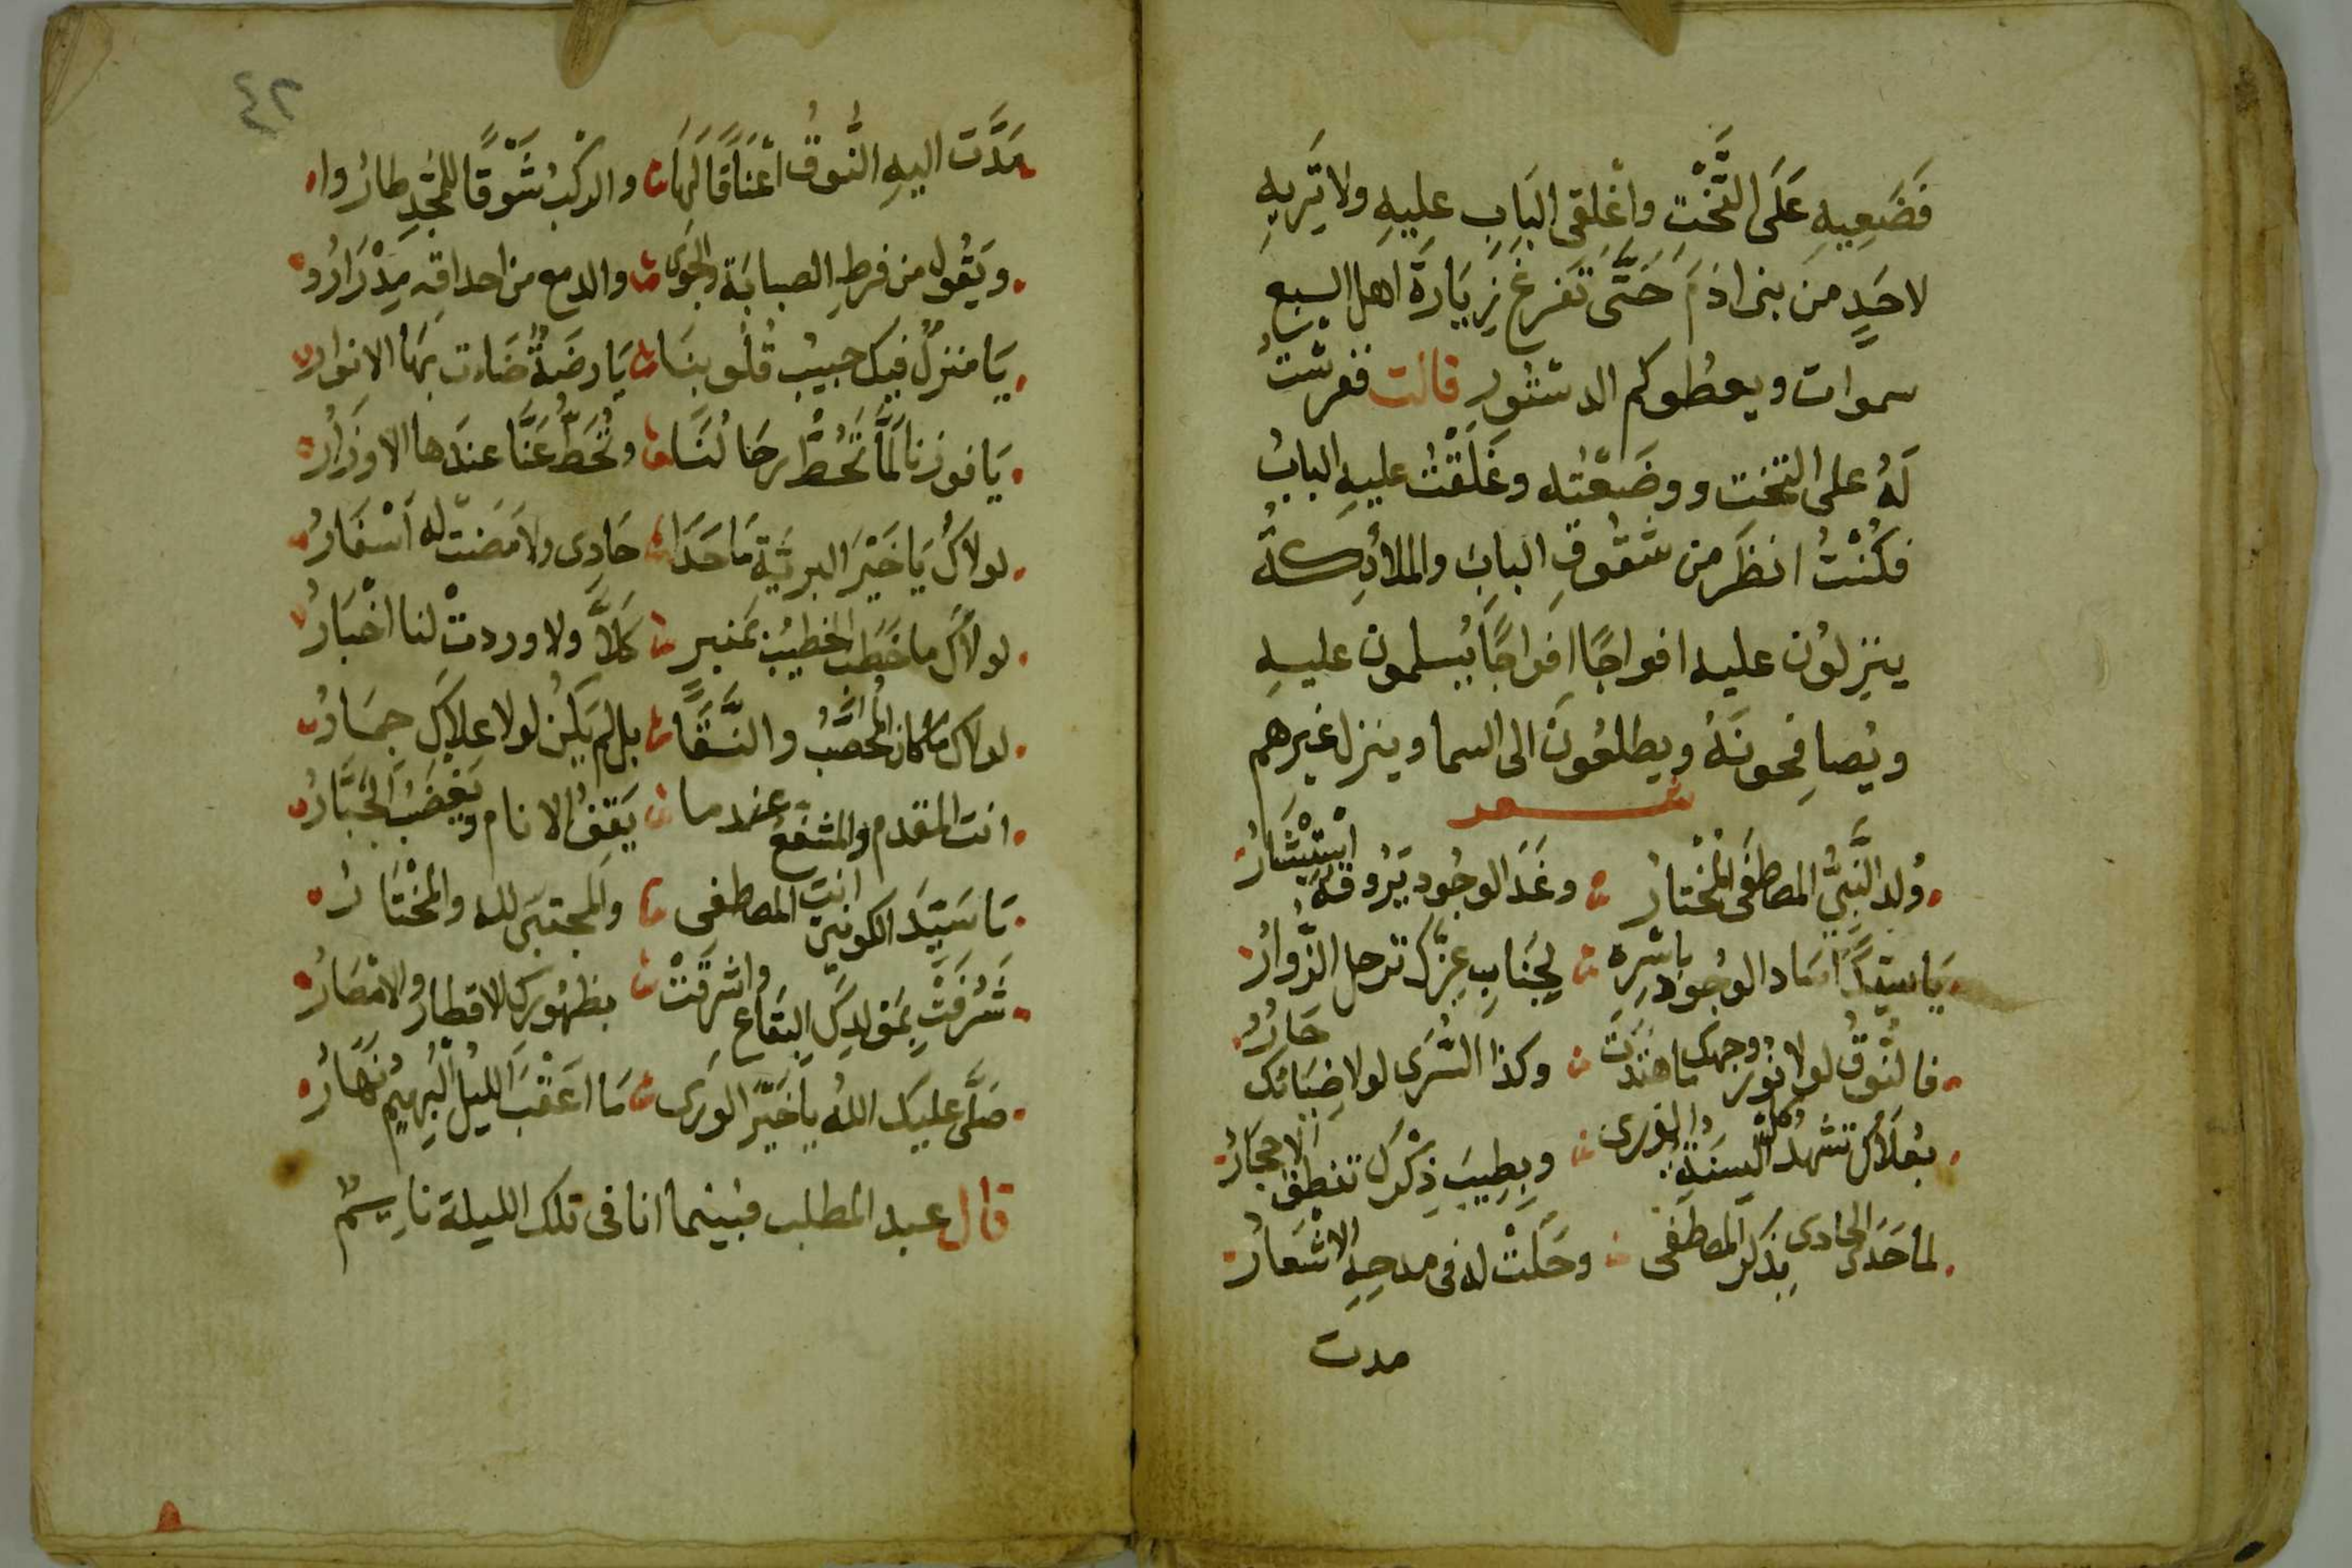 فَضَعِيهِ عَلَى التَّخْتِ واَغْلِقى البَابِ عليهِ ولا تَرِيهِ
لاحَدٍ من بنى ادَمَ حَتَّى تَفرغ زِيَارَة اهل السبع
سموات ويعطوكم الدستُورِ قالت ففرشتُ
لَهُ على التخت ووضَعْتُه وغَلَقْتُ عليهِ البابُ
فكُنْتُ انظَر من شقُوقِ البابِ والملائِكةُ
ينزِلوُن عليه افواجًا افواجًا يُسلمون عليهِ
ويُصافِحونَهُ ويطلعُونَ الى السما وينزل غيرهم
شعر
وُلد النَّبِيُّ المصطَفَى المُخْتارُ وغَدَ الوجُود يَرُوقهُ اسْتبْشَارُ
يَا سيّدًا سَاد الوجُود باسْرِهِ لِجَنَابِ عِزِّكَ ترحل الزُّوارُ
فالنُّوقُ لولا نُور وجهك ماهتدَت وكذا السُّرَى لولا ضِيَائك حَارُ
بعُلاَكَ تشهدُ السنَةُ كل الورى وبِطِيبَ ذِكْرِكَ تنطقُ الاحجَارُ
لما حَدَى الحادى بذكر المصطَفى وحَلَتْ له فى مدحِهِ الاشْعَارُ
مدت
٤٢
مَدَّت اليهِ النُّوقُ اعْنَاقًا لَهَا والركْبُ شَوْقًا للمَجْدِ طارُوا
ويَقُول من فرطِ الصبابَة والجَوَى والدمع من احداقِهِ مِدْرَارُ
يَا منزلٌ فيك حبيبُ قُلوبنَا يَا رضَةٌ ضَاءت بهَا الانوار
يَا فوزنا لَمَّا تَحُطُّ رحَالُنَا وتُحَطّ عَنَّا عندَها الاوزَارُ
لولاكَ يَا خَيْرَ البريَّةِ مَا حَدَا حَادِى ولا مَضتْ له اَسْفَارُ
لولاكَ ما خَطَبَ الخطيبُ بمنبرِ كَلاَّ ولا وردتْ لنا اخْبَارُ
لولاكَ ما كان المُحصَّبُ والنَّقَا بل لم يَكُن لولا علاكَ جِمَارُ
انت المقدم والمشفع عندما يَقفُ الانام ويَغْضَبُ الجَبَّارُ
يَا سَيّدَ الكونينِ انتَ المصطفى والمجتبَى لله والمخْتَارُ
شَرُفَتْ بمَولدِكَ البَقاع واشرقَتْ بظهُورِكِ الاقطارُ والامْصَارُ
صَلَّى عليكَ اللهُ يا خَيْرَ الورَى مَا اعَقْبَ الليلَ البَهِيمِ نَهَارُ
قال عبد المطلب فبينما انا فى تلك الليلة نايم